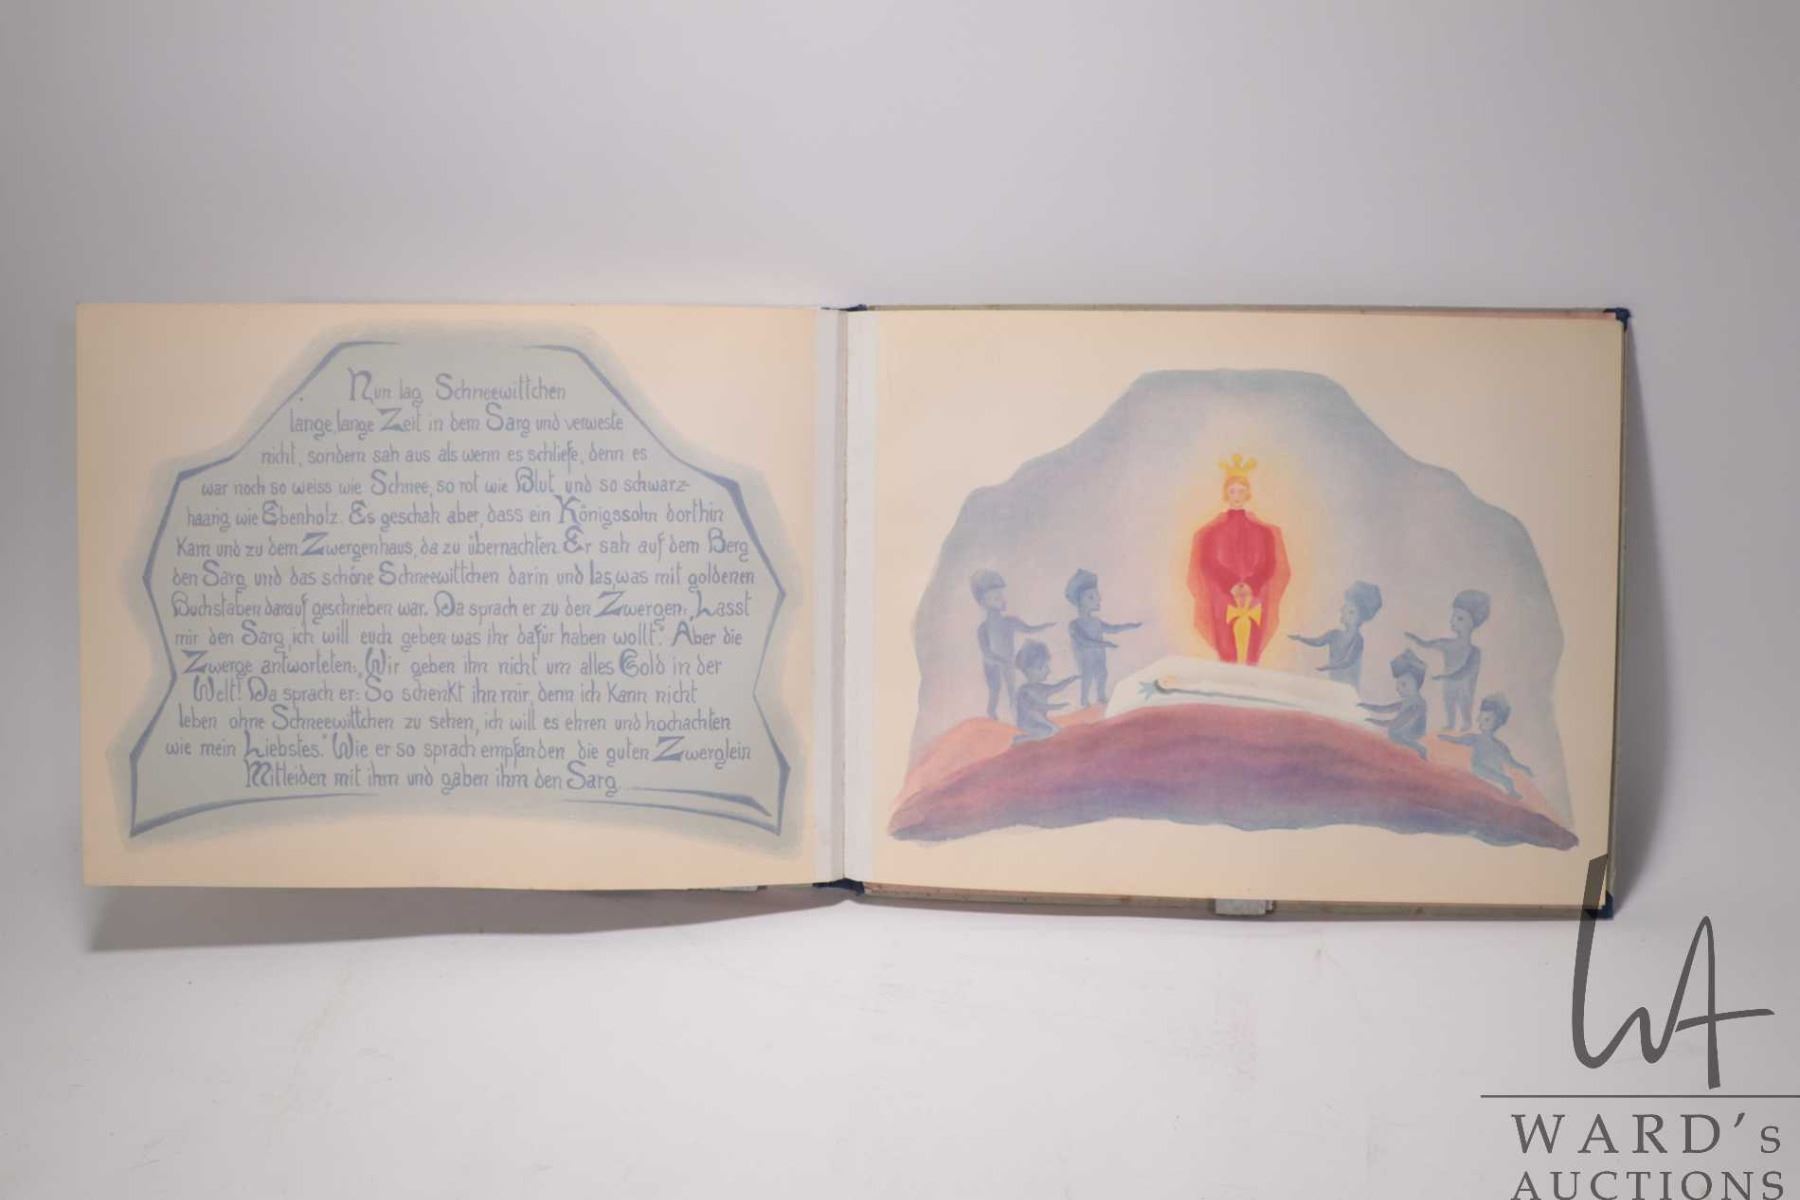 Nun lag Schneewittchen
lange, lange Zeit in dem Sarg und verweste
nicht, sondern sah aus als wenn es schliefe, denn es
war noch so weiss wie Schnee, so rot wie Blut und so schwarz-
haarig wie Ebenholz. Es geschah aber, dass ein Königssohn dorthin
kam und zu dem Zwergenhaus, da zu übernachten. Er sah auf dem Berg
den Sarg und das schöne Schneewittchen darin und las, was mit goldenen
Buchstaben darauf geschrieben war. Da sprach er zu den Zwergen: „Lasst
mir den Sarg, ich will euch geben was ihr dafür haben wollt." Aber die
Zwerge antworteten: „Wir geben ihn nicht um alles Gold in der
Welt! Da sprach er: So schenkt ihn mir, denn ich kann nicht
leben ohne Schneewittchen zu sehen, ich will es ehren und hochachten
wie mein Liebstes." Wie er so sprach empfanden die guten Zwerglein
Mitleiden mit ihm und gaben ihm den Sarg.
WA
WARD's
AUCTIONS